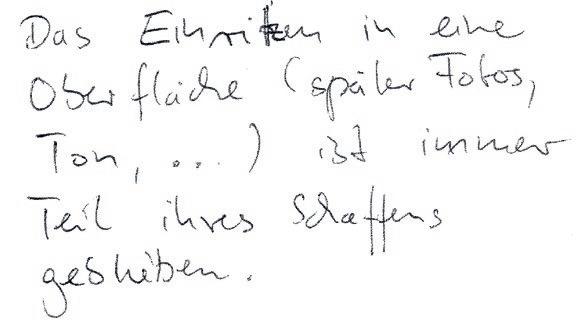 Das Einritzen in eine
Oberfläche (später Fotos,
Ton, ...) ist immer
Teil ihres Schaffens
geblieben.